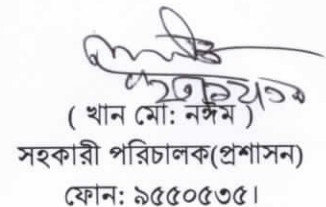 ( খান মো: নঈম )
সহকারী পরিচালক(প্রশাসন)
ফোন: ৯৫৫০৫৩৫।